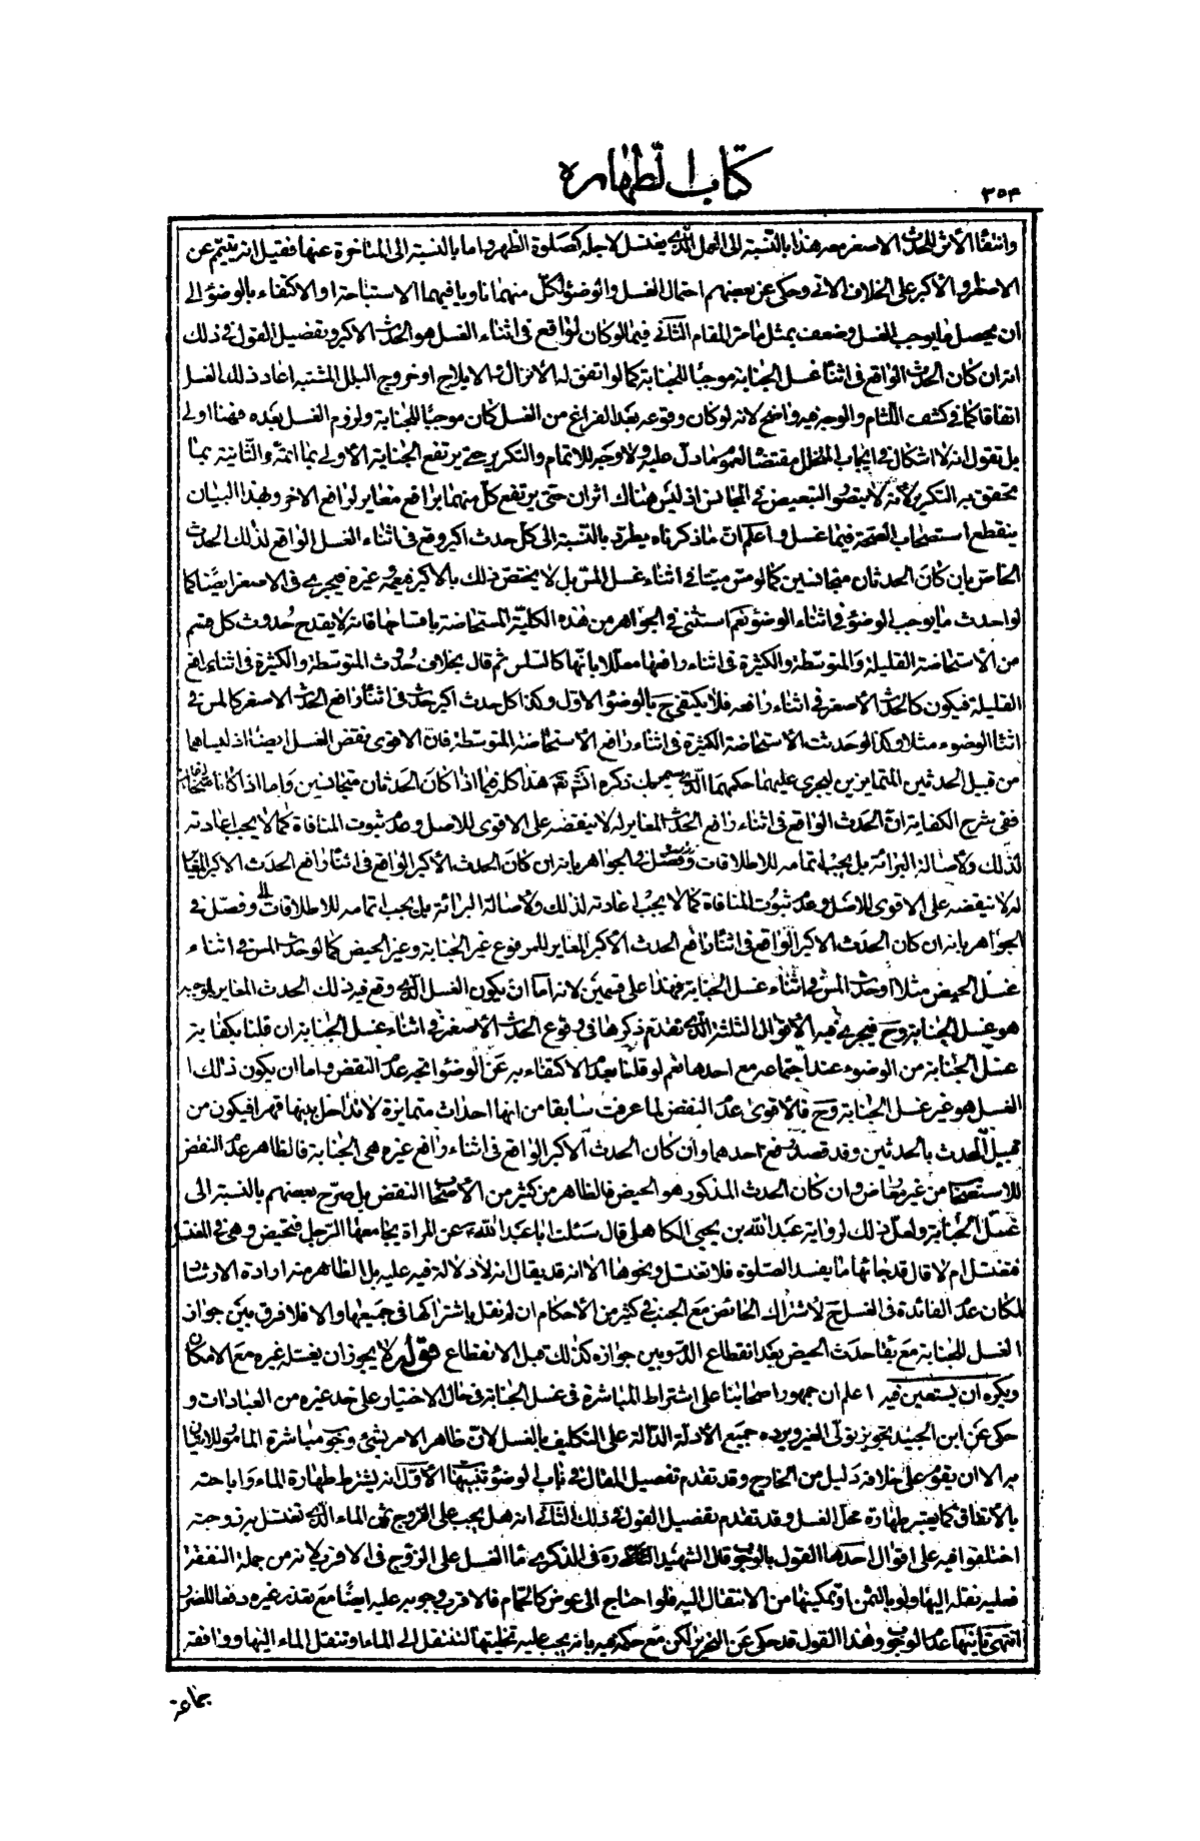 كتاب الطهارة
٣٥٤
وانتفاء الأثر للحدث الاصغر معه هذا بالنسبة الى العمل الذي يغتسل لاجله كصلوة الظهر واما بالنسبة الى المتاخرة عنها فقيل انه تيمّم عن
الاصغر والأكبر على الخلاف الاتي وحكى عن بعضهم احتمال الغسل والوضوء لكلّ منهما ناويا فيهما الاستباحة او الاكتفاء بالوضوء الى
ان يحصل ما يوجب الغسل وضعف بمثل ما مر المقام الثاني فيما لو كان الواقع في اثناء الغسل هو الحدث الاكبر وتفصيل القول في ذلك
انه ان كان الحدث الواقع في اثناء غسل الجنابة موجبًا للجنابة كما لو اتفق له الأنزال او الايلاج او خروج البلل المشتبه اعاد ذلك الغسل
اتفاقا كما في كشف اللثام والوجه فيه واضح لانه لو كان وقوعه بعد الفراغ من الغسل كان موجبًا للجنابة ولزوم الغسل بعده فهنا اولى
بل نقول انه لا اشكال في ايجاب المتخلل مقتضاه لعموم ما دلّ عليه ولا وجه للاتمام والتكرير حتى يرتفع الجنابة الأولى بما اتمه والثانية بما
تحقق به التكرير لأنه لا يتصور التبعيض في المجانس اذ ليس هناك اثران حتى يرتفع كلّ منهما برافع مغاير لرافع الاخر وبهذا البيان
ينقطع استصحاب الصحة فيما غسل واعلم ان ما ذكرناه يطرد بالنسبة الى كل حدث اكبر وقع في اثناء الغسل الرافع لذلك الحدث
الخاص بان كان الحدثان متجانسين كما لو مس ميتا في اثناء غسل المس بل لا يختص ذلك بالاكبر فيعمه وغيره فيجري في الاصغر ايضًا كما
لو احدث ما يوجب الوضوء في اثناء الوضوء نعم استثنى في الجواهر من هذه الكلية المستحاضة باقسامها فانه لا يقدح حدوث كل قسم
من الاستحاضة القليلة والمتوسطة والكثيرة في اثناء رافعها معللا بانها كالسلس ثم قال بخلاف حدوث المتوسطة والكثيرة في اثناء رافع
القليلة فيكون كالحدث الأصغر في اثناء رافعه فلا يكتفي ح بالوضوء الاول وكذا كل حدث اكبر حدث في اثناء رافع الحدث الاصغر كالمس في
اثناء الوضوء مثلا وكذا لو حدثت الاستحاضة الكثيرة في اثناء رافع الاستحاضة المتوسطة فان الاقوى نقض الغسل ايضا اذ ليسا هما
من قبيل الحدثين المتمايزين ليجري عليهما حكمهما الذي سيمر بك ذكره انش تعم هذا كله فيما اذا كان الحدثان متجانسين واما اذا كانا
ففى شرح الكفاية ان الحدث الواقع في اثناء رافع الحدث المغاير له لا ينقضه على الاقوى للاصل وعدم ثبوت المنافاة كما لا يجب اعادته
لذلك ولأصالة البرائة بل يجب اتمامه للاطلاقات وفصّل في الجواهر بانه ان كان الحدث الأكبر الواقع في اثناء رافع الحدث الاكبر المغاير
له لا ينقضه على الاقوى للاصل وعدم ثبوت المنافاة كما لا يجب اعادته لذلك ولأصالة البرائة بل يجب اتمامه للاطلاقات وفصل في
الجواهر بانه ان كان الحدث الاكبر الواقع في اثناء رافع الحدث الأكبر المغاير للمرفوع غير الجنابة وغير الحيض كما لو حدث المس في اثناء
غسل الحيض مثلا او حدث المس في اثناء غسل الجنابة فهذا على قسمين لانه اما ان يكون الغسل الذي وقع فيه ذلك الحدث المغاير لموجبه
هو غسل الجنابة وح فيجري فيه الأقوال الثلثة التي تقدّم ذكرها في وقوع الحدث الأصغر في اثناء غسل الجنابة ان قلنا بكفاية
غسل الجنابة من الوضوء عند اجتماعه مع احدها نعم لو قلنا بعدم الاكتفاء به عن الوضوء اتجه عدم النقض واما ان يكون ذلك ا
الغسل هو غير غسل الجنابة وح فالأقوى عدم النقض لما عرفت سابقا من انها احداث متمايزة لا تداخل بينها قهرا فيكون من
قبيل المحدث بالحدثين وقد قصد رفع احدهما وان كان الحدث الاكبر الواقع في اثناء رافع غيره هي الجنابة فالظاهر عدم النقض
للاستصحاب من غير معارض وان كان الحدث المذكور هو الحيض فالظاهر من كثير من الأصحاب النقض بل صرّح بعضهم بالنسبة الى
غسل الجنابة ولعل ذلك لرواية عبد الله بن يحيى الكاهلى قال سئلت ابا عبد الله ع عن المراة يجامعها الرّجل فتحيض وهى في المغتسل
فتغتسل ام لا قال قد جائها ما يفسد الصلوة فلا تغتسل ونحوها الا انه قد يقال انه لا دلالة فيه عليه بل الظاهر منه ارادة الارشاد
لمكان عدم الفائدة في الغسل ح لاشتراك الحائض مع الجنب في كثير من الأحكام ان لم نقل باشتراكها في جميعها والا فلا فرق بين جواز
الغسل للجنابة مع بقاء حدث الحيض بعد انقطاع الدّم وبين جوازه كذلك قبل الانقطاع قوله لا يجوز ان يغسله غيره مع الامكان
ويكره ان يستعين فيه اعلم ان جمهور اصحابنا على اشتراط المباشرة في غسل الجنابة في حال الاختيار على حد غيره من العبادات و
حكى عن ابن الجنيد تجويز تولى الغير ويرده جميع الأدلة الدالة على التكليف بالغسل لان ظاهر الامر بشئ وجوب مباشرة المامور للاتيان
به الا ان يقوم على خلافه دليل من الخارج وقد تقدم تفصيل المقال في باب الوضوء تنبيهات الأول انه يشترط طهارة الماء واباحته
بالاتفاق كما يعتبر طهارة محل الغسل وقد تقدم تفصيل القول في ذلك الثاني انه هل يجب على الزوج ثمن الماء الذي تغتسل به زوجته
اختلفوا فيه على اقوال احدها القول بالوجوب قال الشهيد ره في الذكرى ماء الغسل على الزوج في الاقرب لانه من جملة النفقة
فعليه نقله اليها ولو بالثمن او تمكينها من الانتقال اليه فلو احتاج الى عوض كالحمام فالاقرب وجوبه عليه ايضًا مع تعذر غيره دفعا للضرر
انتهى ثانيها عدم الوجوب وهذا القول قد حكى عن التحرير لكن مع حكمه فيه بانه يجب عليه تخليتها لتنتقل الى الماء او تنقل الماء اليها ووافقه
جماعة